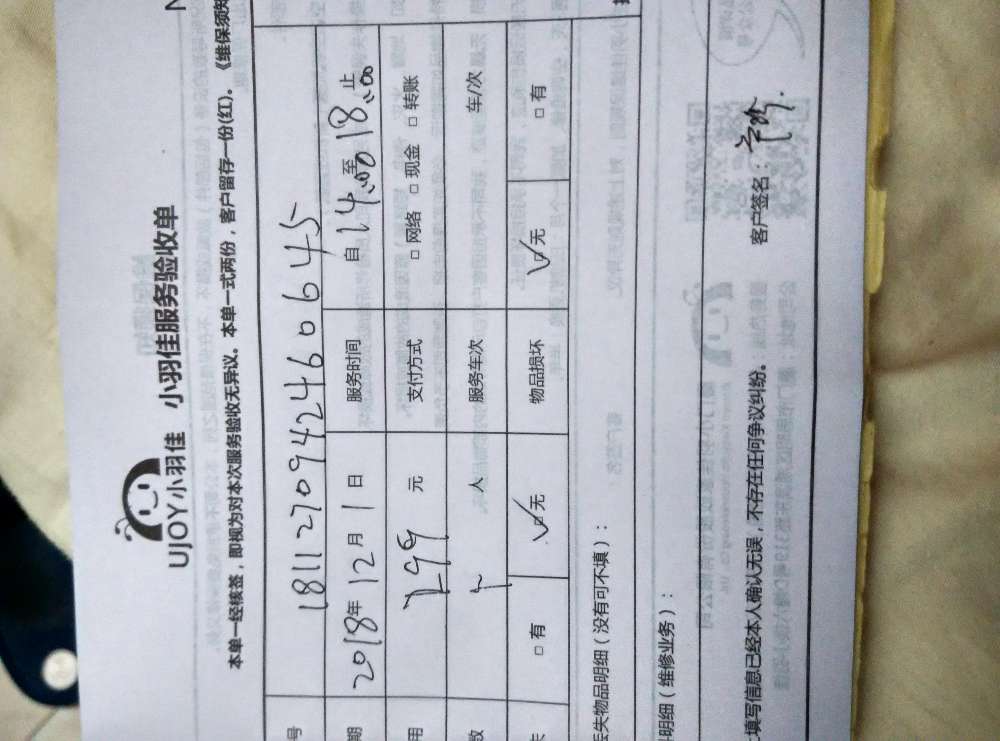 UJOY小羽佳 小羽佳服务验收单
本单一经核签，即视为对本次服务验收无异议。本单一式两份，客户留存一份(红)。《维保须知
号 181127094246064 5
期 2018年12月1日 服务时间 自14:00至18:00止
用 299元 支付方式 □网络 □现金 □转账
数 人 服务车次 车/次
失 □有 ☑无 物品损坏 ☑无 □有
丢失物品明细（没有可不填）：
料明细（维修业务）：
上填写信息已经本人确认无误，不存在任何争议纠纷。 客户签名：